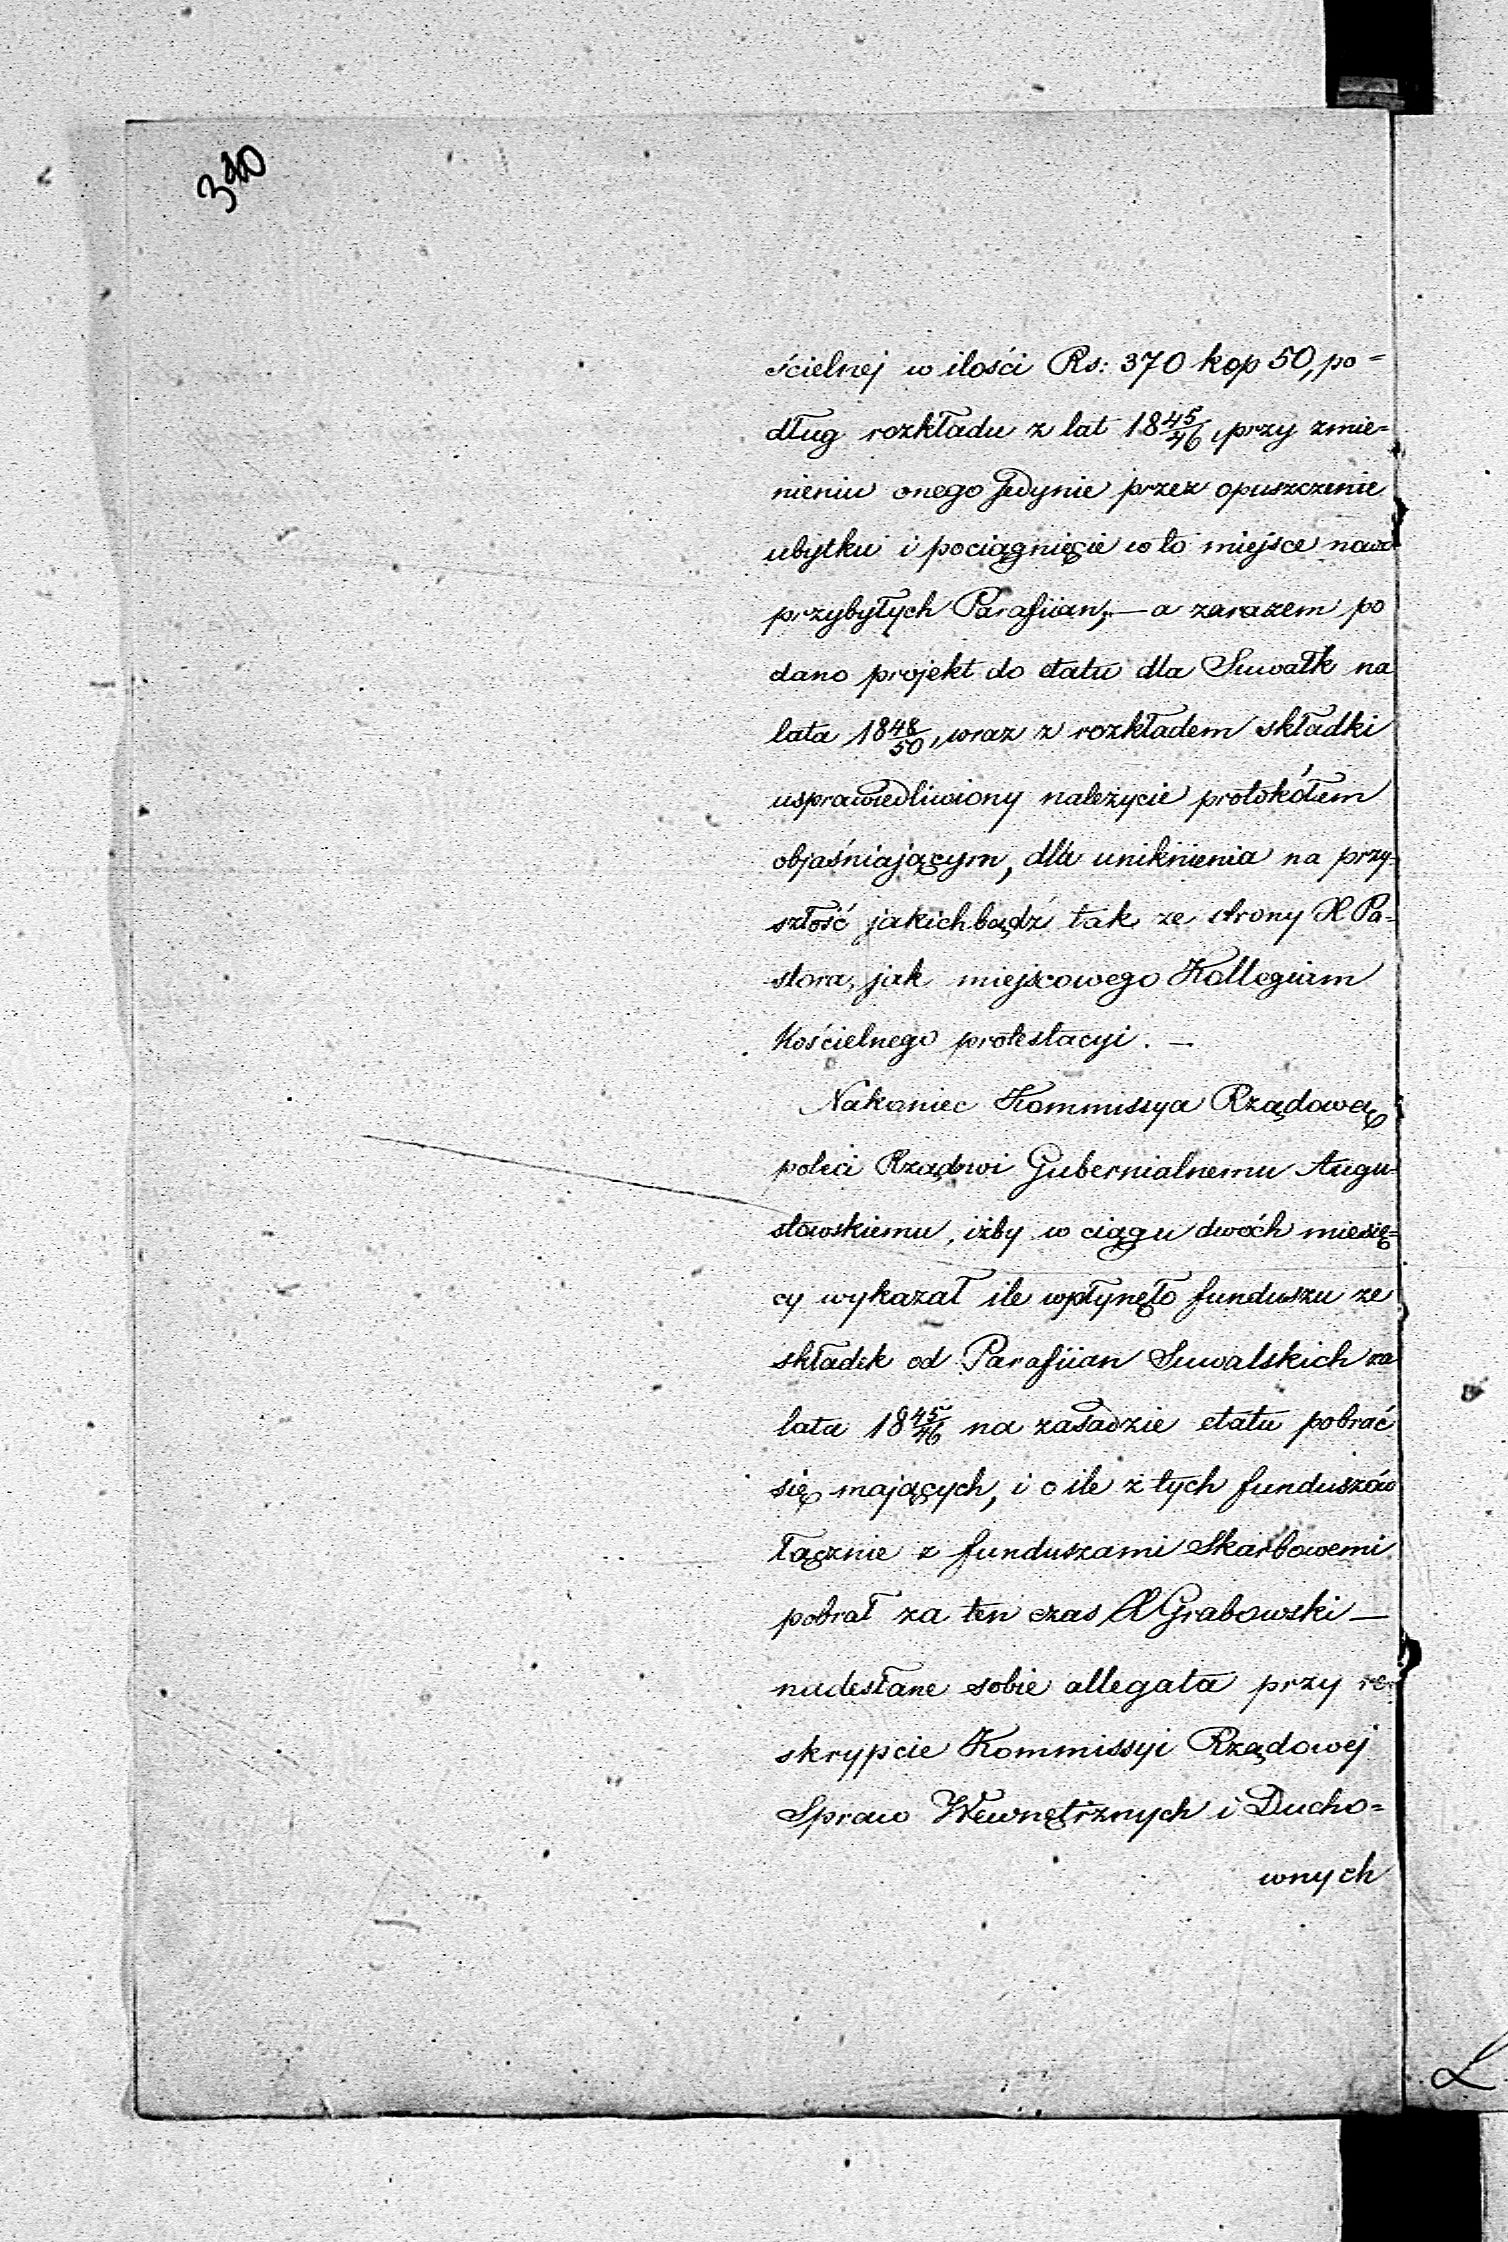 340
ścielnej w ilości Rs: 370 kop 50, po=
dług rozkładu z lat 18 45/46, przy zmie=
nieniu onego jedynie przez opuszczenie
ubytku i pociągnięcie w to miejsce nowo
przybyłych Parafiian, — a zarazem po
dano projekt do etatu dla Suwałk na
lata 18 48/50, wraz z rozkładem składki
usprawiedliwiony należycie protokółem
objaśniającym, dla uniknienia na przy=
szłość jakichbądź tak ze strony X Pa=
stora, jak miejscowego Kollegium
Kościelnego protestacyi. —
Nakoniec Kommissya Rządowa
poleci Rządowi Gubernialnemu Augu=
stowskiemu, iżby w ciągu dwóch miesię=
cy wykazał ile wpłynęło funduszu ze
składek od Parafiian Suwalskich za
lata 18 45/46 na zasadzie etatu pobrać
się mających, i o ile z tych funduszów
łącznie z funduszami Skarbowemi
pobrał za ten czas X Grabowski —
nadesłane sobie allegata przy re=
skrypcie Kommissyi Rządowej
Spraw Wewnętrznych i Ducho=
wnych
L